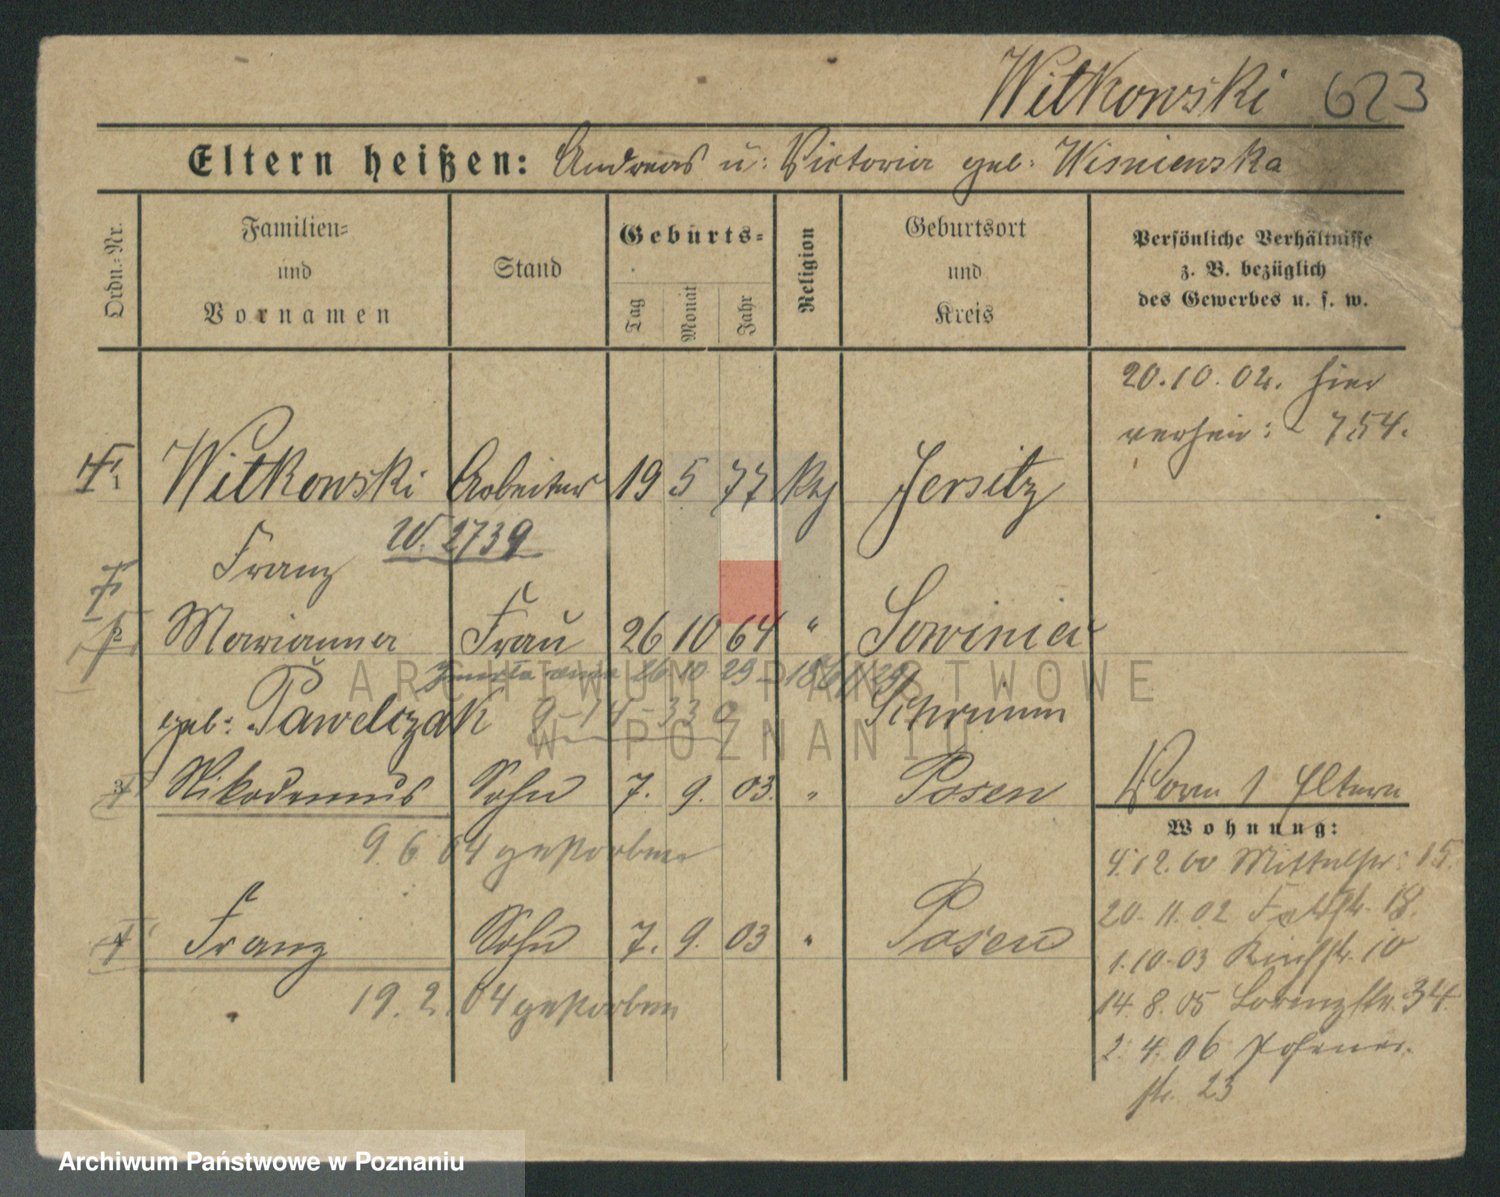 Witkowski 623
Eltern heißen: Andreas u: Victoria geb. Wisniewska
Ordn.-Nr.
Familien-
und
Vornamen
Stand
Geburts-
Tag
Monat
Jahr
Religion
Geburtsort
und
Kreis
Persönliche Verhältnisse
z. B. bezüglich
des Gewerbes u. s. w.
20.10.02. hier
verheir: 754.
1 Witkowski Arbeiter 19 5 77 Kth Jersitz
Franz W. 2739
2 Marianna Frau 26 10 64 " Sowiniec
26.10.29
geb: Pawelczak Schrimm
9-14-33
3 Nikodemus Sohn 7. 9. 03. " Posen
9.6.04 gestorben
4 Franz Sohn 7. 9. 03 " Posen
19.2.04 gestorben
Vorn 1 Eltern
Wohnung:
4.12.00 Mittelstr: 15.
20.11.02 18.
1.10.03 10
14.8.05 Lorenzstr. 34.
2.4.06 Posener-
str. 23
ARCHIWUM PAŃSTWOWE
W POZNANIU
Archiwum Państwowe w Poznaniu